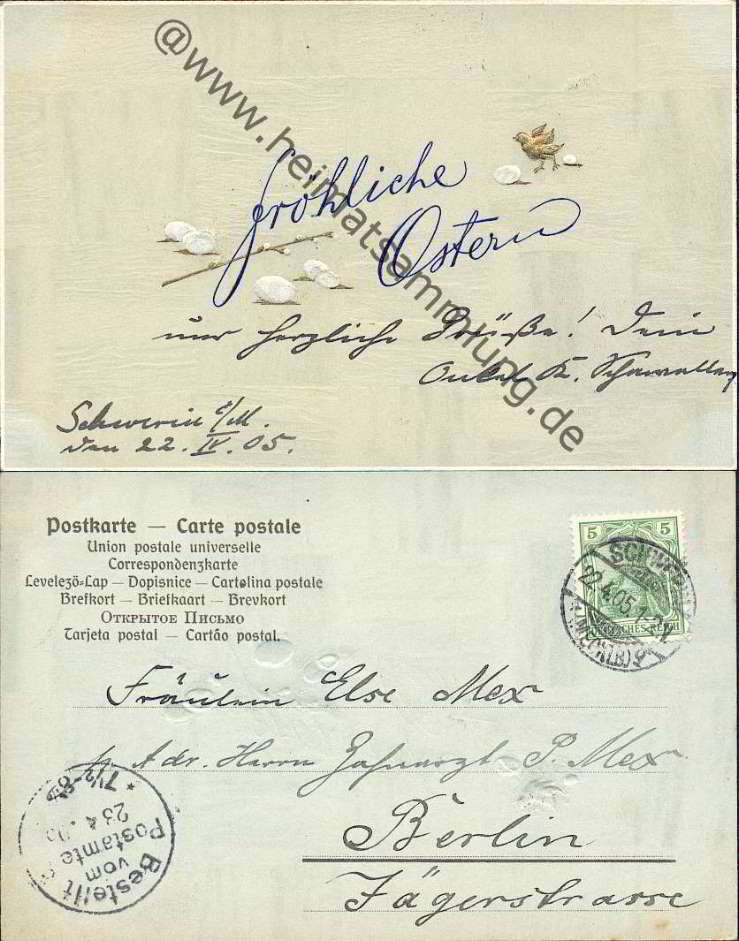 @www.heimatsammlung.de
fröhliche
Ostern
und herzliche Grüße! Dein
Onkel K.
Schwerin i/M.
den 22. IV. 05.
Postkarte — Carte postale
Union postale universelle
Correspondenzkarte
Levelező-Lap — Dopisnice — Cartolina postale
Brefkort — Briefkaart — Brevkort
Открытое Письмо
Tarjeta postal — Cartão postal.
5 5
DEUTSCHES REICH
22.4.05. 1-2N.
(MECKLB)
Fräulein Else Mex
p. Adr. Herrn Zahnarzt P. Mex
Berlin
Jägerstrasse
Bestellt
vom
Postamte
23.4.
7½-8¼